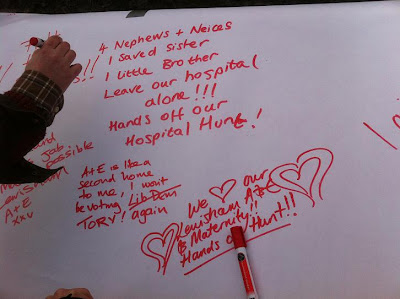 4 Nephews + Neices
1 Saved Sister
1 Little Brother
Leave our hospital
alone!!!
Hands off our
Hospital Hunt!
job
possible
Lewisham
A+E
xxx
A+E is like a
second home
to me, I wont
be voting Lib Dem
TORY! again
We our
Lewisham A&E
& Maternity!!
Hands off Hunt!!